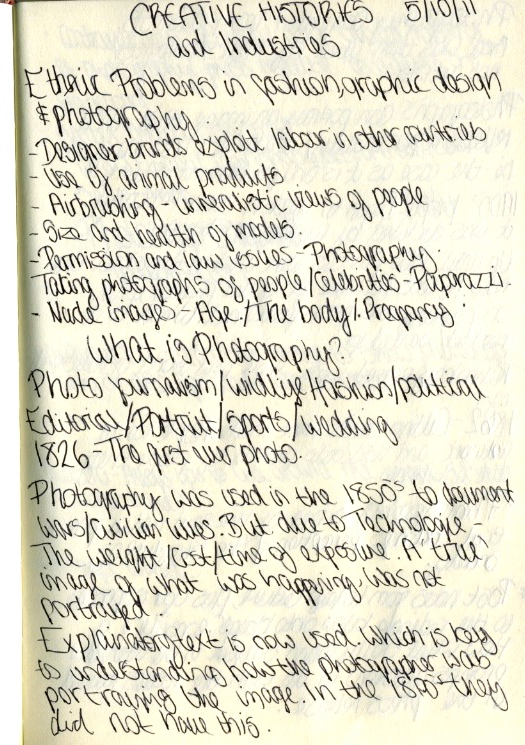 CREATIVE HISTORIES 5/10/11
and Industries
Ethnic Problems in fashion, graphic design
& photography
- Designer brands exploit labour in other countries
- Use of animal products
- Airbrushing - unrealistic views of people
- Size and health of models.
- Permission and law issues - Photography.
Taking photographs of people/Celebrities - Paparazzi.
- Nude images - Age / The body /. Pregnancy.
What is Photography?
Photo journalism/wildlife/fashion/political
Editorial/Portrait/sports/wedding
1826 - The first ever photo.
Photography was used in the 1850's to document
wars/Civilian lives. But due to Technologie -
The weight/cost/time of exposure. A 'true'
image of what was happening, was not
portrayed.
Explanatory text is now used. which is key
to understanding how the photographer was
portraying the image. In the they
did not have this.